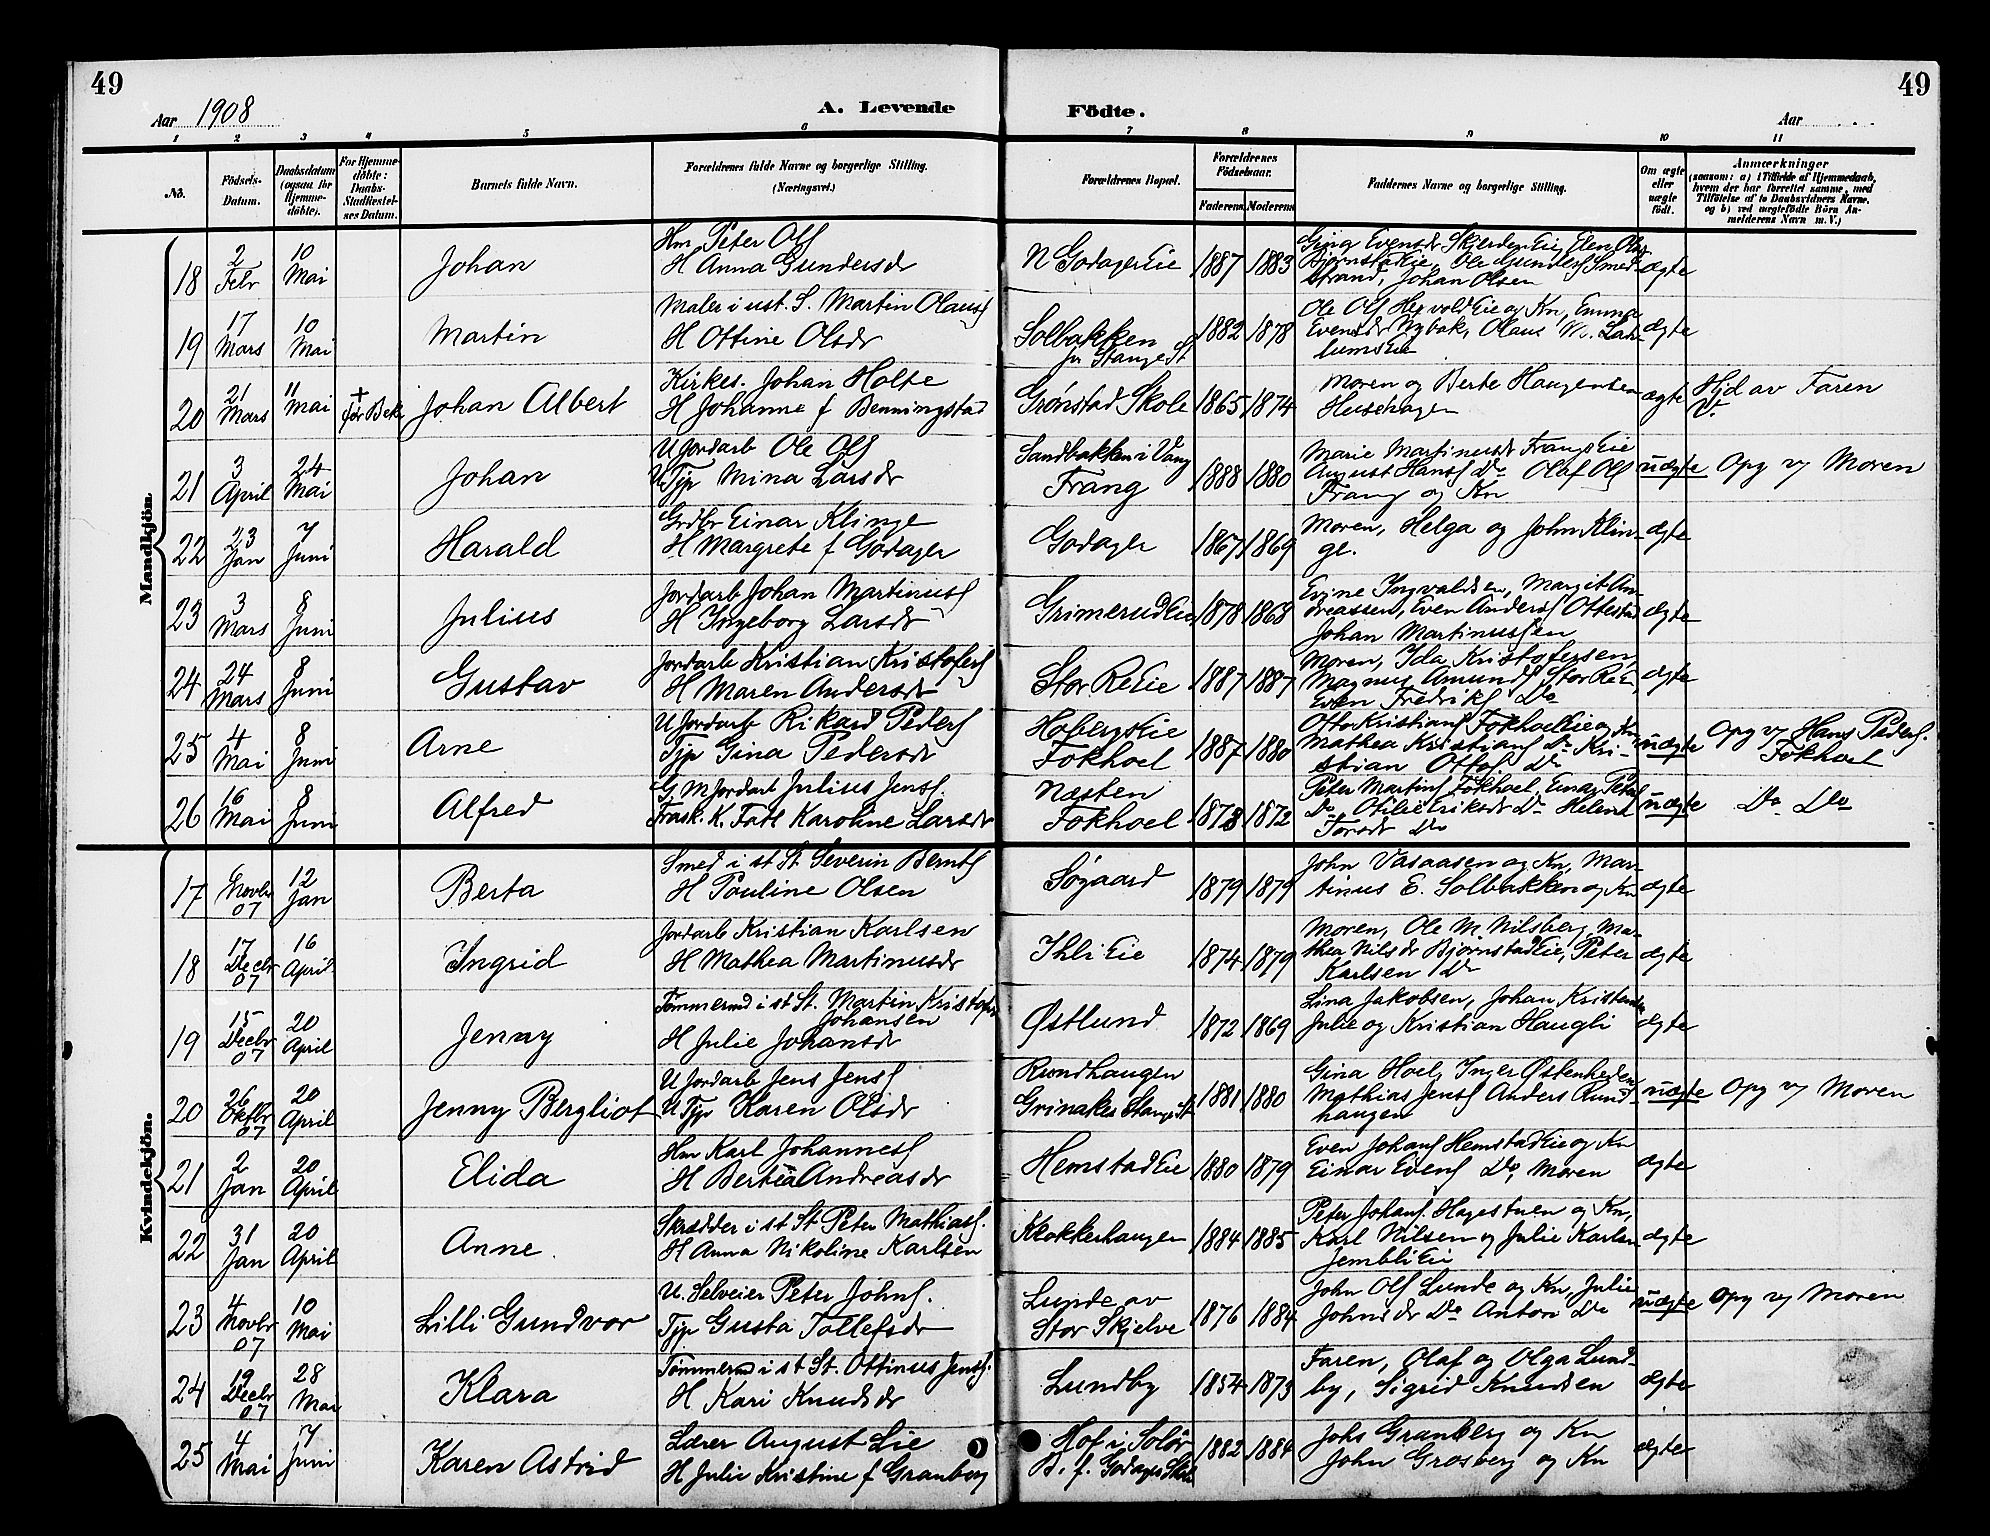 49
49
Aar 1908
A. Levende
Födte.
Aar
1 2 3 4 5 6 7 8 9 10 11
No.
Födsels-Datum.
Daabsdatum (ogsaa for Hjemme-döbte).
For Hjemme-döbte: Daabs-Stadfæstel-ses Datum.
Barnets fulde Navn.
Forældrenes fulde Navne og borgerlige Stilling.
(Næringsvei.)
Forældrenes Bopæl.
Forældrenes Födselsaar.
Faderens Moderens
Faddernes Navne og borgerlige Stilling.
Om ægte eller uægte födt.
Anmærkninger
(saasom: a) i Tilfælde af Hjemmedaab, hvem der har forrettet samme, med Tilföielse af to Daabsvidners Navne, og b) ved uægtefödte Börn Anmelderens Navn m. V.)
Mandkjön
18 2 Febr 10 Mai Johan
Hm Peter Ols
H Anna Gundersdr
N Godager Eie 1887 1883
Gina Evensdr Skjerden Eie, Elen Olsdr
Bjørnstad Eie, Ole Gunders Smed-
strand, Johan Olsen
ægte
19 17 Mars 10 Mai Martin
Maler i ust. S. Martin Olaus
H Ottine Olsdr
Solbakken
pr Stange St
1882 1878
Ole Ols Hervold Eie og Kn, Emma
Evensdr Nybak, Olaus M. Lah-
lums Eie
ægte
20 21 Mars 11 Mai + før Bek Johan Albert
Kirkes. Johan Holte
H Johanne f Benningstad
Grønstad Skole 1865 1874
Moren og Berte Haugensen
Husehagen
ægte
Hjd av Faren
21 3 April 24 Mai Johan
U Jordarb Ole Ols
U Tjp Mina Larsdr
Sandbakken i Vang
Frang
1888 1880
Marie Martinusdr Frangs Eie
August Hans Do Olaf Ols
Frang og Kn
uægte
Opg v/ Moren
22 23 Jan 7 Juni Harald
Grdbr Einar Klinge
H Margrete f Godager
Godager 1867 1869
Moren, Helga og John Klin-
ge.
ægte
23 3 Mars 8 Juni Julius
Jordarb Johan Martinus
H Ingeborg Larsdr
Grimerud Eie 1878 1868
Evine Ingvaldsen, Margit An-
dreassen, Even Anders Ottestad
Johan Martinussen
ægte
24 24 Mars 8 Juni Gustav
Jordarb Kristian Kristofers
H Maren Andersdr
Stor Re Eie 1887 1887
Moren, Ida Kristofersen,
Magnus Amunds Stor Re E
Even Fredriks Do
ægte
25 4 Mai 8 Juni Arne
U Jordarb Rikard Peders
Tjp Gina Pedersdr
Hobergs Eie
Fokhoel
1887 1880
Otto Kristians Fokhol Eie og Kn
Mathea Kristians Do Kri-
stian Ottos Do
uægte
Opg v/ Hans Peders.
Fokhoel
26 16 Mai 8 Juni Alfred
G M Jordarb Julius Jens.
Frask. K. Fatl Karoline Larsdr
Næsten
Fokhoel
1873 1872
Peter Martins Fokhoel, Einar Peters
Do Otilie Eriksdr Do Helene
Torsdr Do
uægte
Do Do
Kvindekjön.
17 Novbr 07 12 Jan Berta
Smed i st St. Severin Bernts
H Pauline Olsen
Søgaard 1879 1879
John Vasaasen og Kn, Mar-
tinus E. Solbakken og Kn
ægte
18 17 Decbr 07 16 April Ingrid
Jordarb Kristian Karlsen
H Mathea Martinusdr
Ihli Eie 1874 1879
Moren, Ole M. Nilsberg, Ma-
thea Nilsdr Bjørnstad Eie, Peter
Karlsen Do
ægte
19 15 Decbr 07 20 April Jenny
Tømmermd i st St. Martin Kristofer
Johansen
H Julie Johansdr
Østlund 1872 1869
Lina Jakobsen, Johan Kristansen
Julie og Kristian Haugli
ægte
20 26 Oktbr 07 20 April Jenny Bergliot
U Jordarb Jens Jens
U Tjp Karen Olsdr
Rundhaugen
Grinaker Stange st
1881 1880
Gina Hoel, Inger Østenheden
Mathias Jens Anders Rund-
haugen
uægte
Opg v/ Moren
21 2 Jan 20 April Elida
Hm Karl Johannes
H Bertea Andreasdr
Hemstad Eie 1880 1879
Even Johans Hemstad Eie og Kn
Einar Evens Do, Moren
ægte
22 31 Jan 20 April Anne.
Skrædder i st St Peter Mathias.
H Anna Nikoline Karlsen
Klokkerhaugen 1884 1885
Peter Johans. Hagestuen og Kn,
Karl Nilsen og Julie Karlsen
Jembli Eie
ægte
23 4 Novbr 07 10 Mai Lilli Gundvor
U. Selveier Peter Johns.
Tjp Gusta Tollefsdr
Lunde av
Stor Skjelve
1876 1884
John Ols Lunde og Kn, Julie
Johnsdr Do Anton Do
uægte
Opg v/ Moren
24 19 Decbr 07 28 Mai Klara
Tømmermd i st St. Ottinus Jens.
H Kari Knudsdr
Lundby 1854 1873
Faren, Olaf og Olga Lund-
by, Sigrid Knudsen
ægte
25 4 Mai 7 Juni Karen Astrid
Lærer August Lie
H Julie Kristine f Granberg
Hof i Solør
B. f. Godager Skole
1882 1884
Johs Granberg og Kn
John Grosberg og Kn
ægte